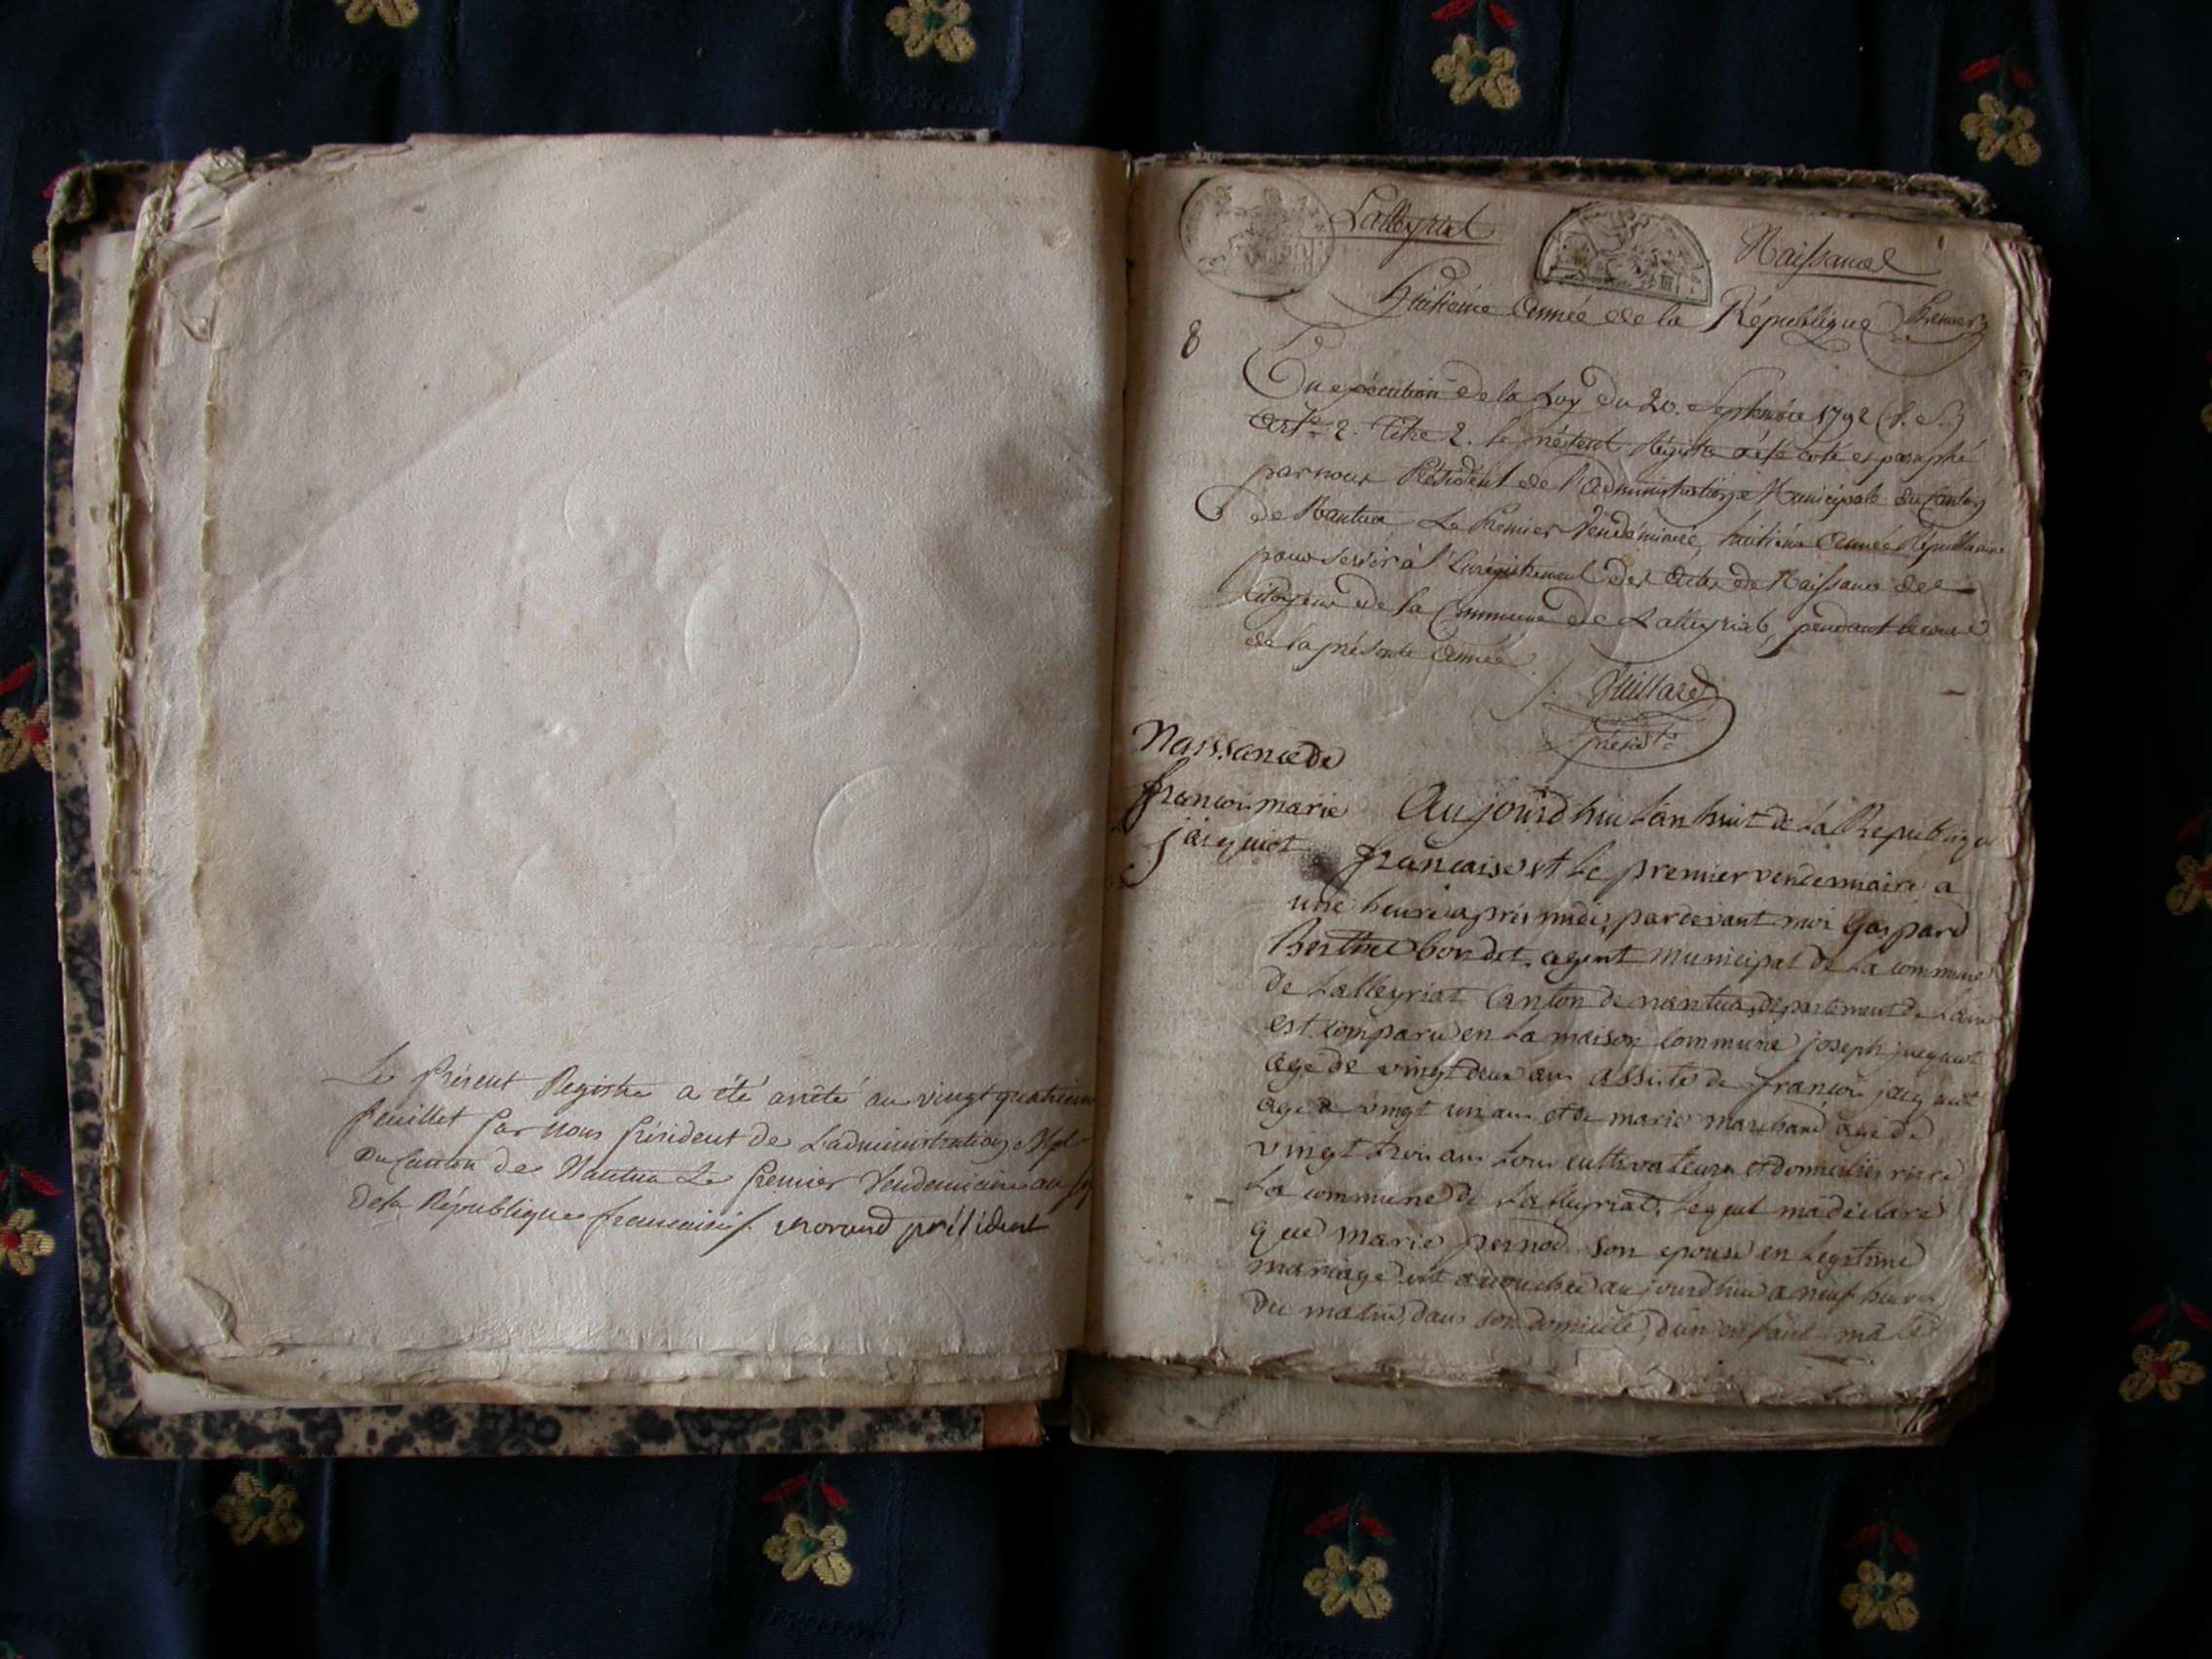 Le présent Registre a été arrêté au vingt quatrieme
feuillet par nous président de L'administration Mple
Du Canton de Nantua Le premier Vendemiaire an
de la République francaise /. morand président
Lalleyriat
Naissance
Huitième Année de la République Premier
8
En exécution de la Loy du 20. Septembre 1792 (v. S.)
Arte. 2. Titre 2. le présent Régistre a été coté et paraphé
par nous Président de l'Administration Municipale du Canton
de Nantua, Le Premier Vendémiaire, huitième Année Républicaine
pour servir à l'Enrégistrement des Actes de Naissance des
citoyens de la Commune de Lalleyriat, pendant le cours
de la présente Année
présidt
Naissance de
francoi marie
jacquiot
Aujourdhui Lan huit de La Republique
francaise et Le premier vendemiaire a
une heure apries midi, pardevant moi Gaspard
Berthet bondet, agent municipal de La commune
de Lalleyriat Canton de nantua, departement de Lain
est comparu en La maison commune joseph jacquiot
agé de vingt deux ans assisté de francoi jacquiot
agé de vingt un ans et de marie marchand agé de
vingt trois ans tous cultivateurs et domiciliés rierè
La commune de Lalleyriat. Lequel ma déclaré
que marie pernod son epouse en Legitime
mariage est accouchée aujourdhui a neuf heures
du matin, dans son domicile, d'un enfant male